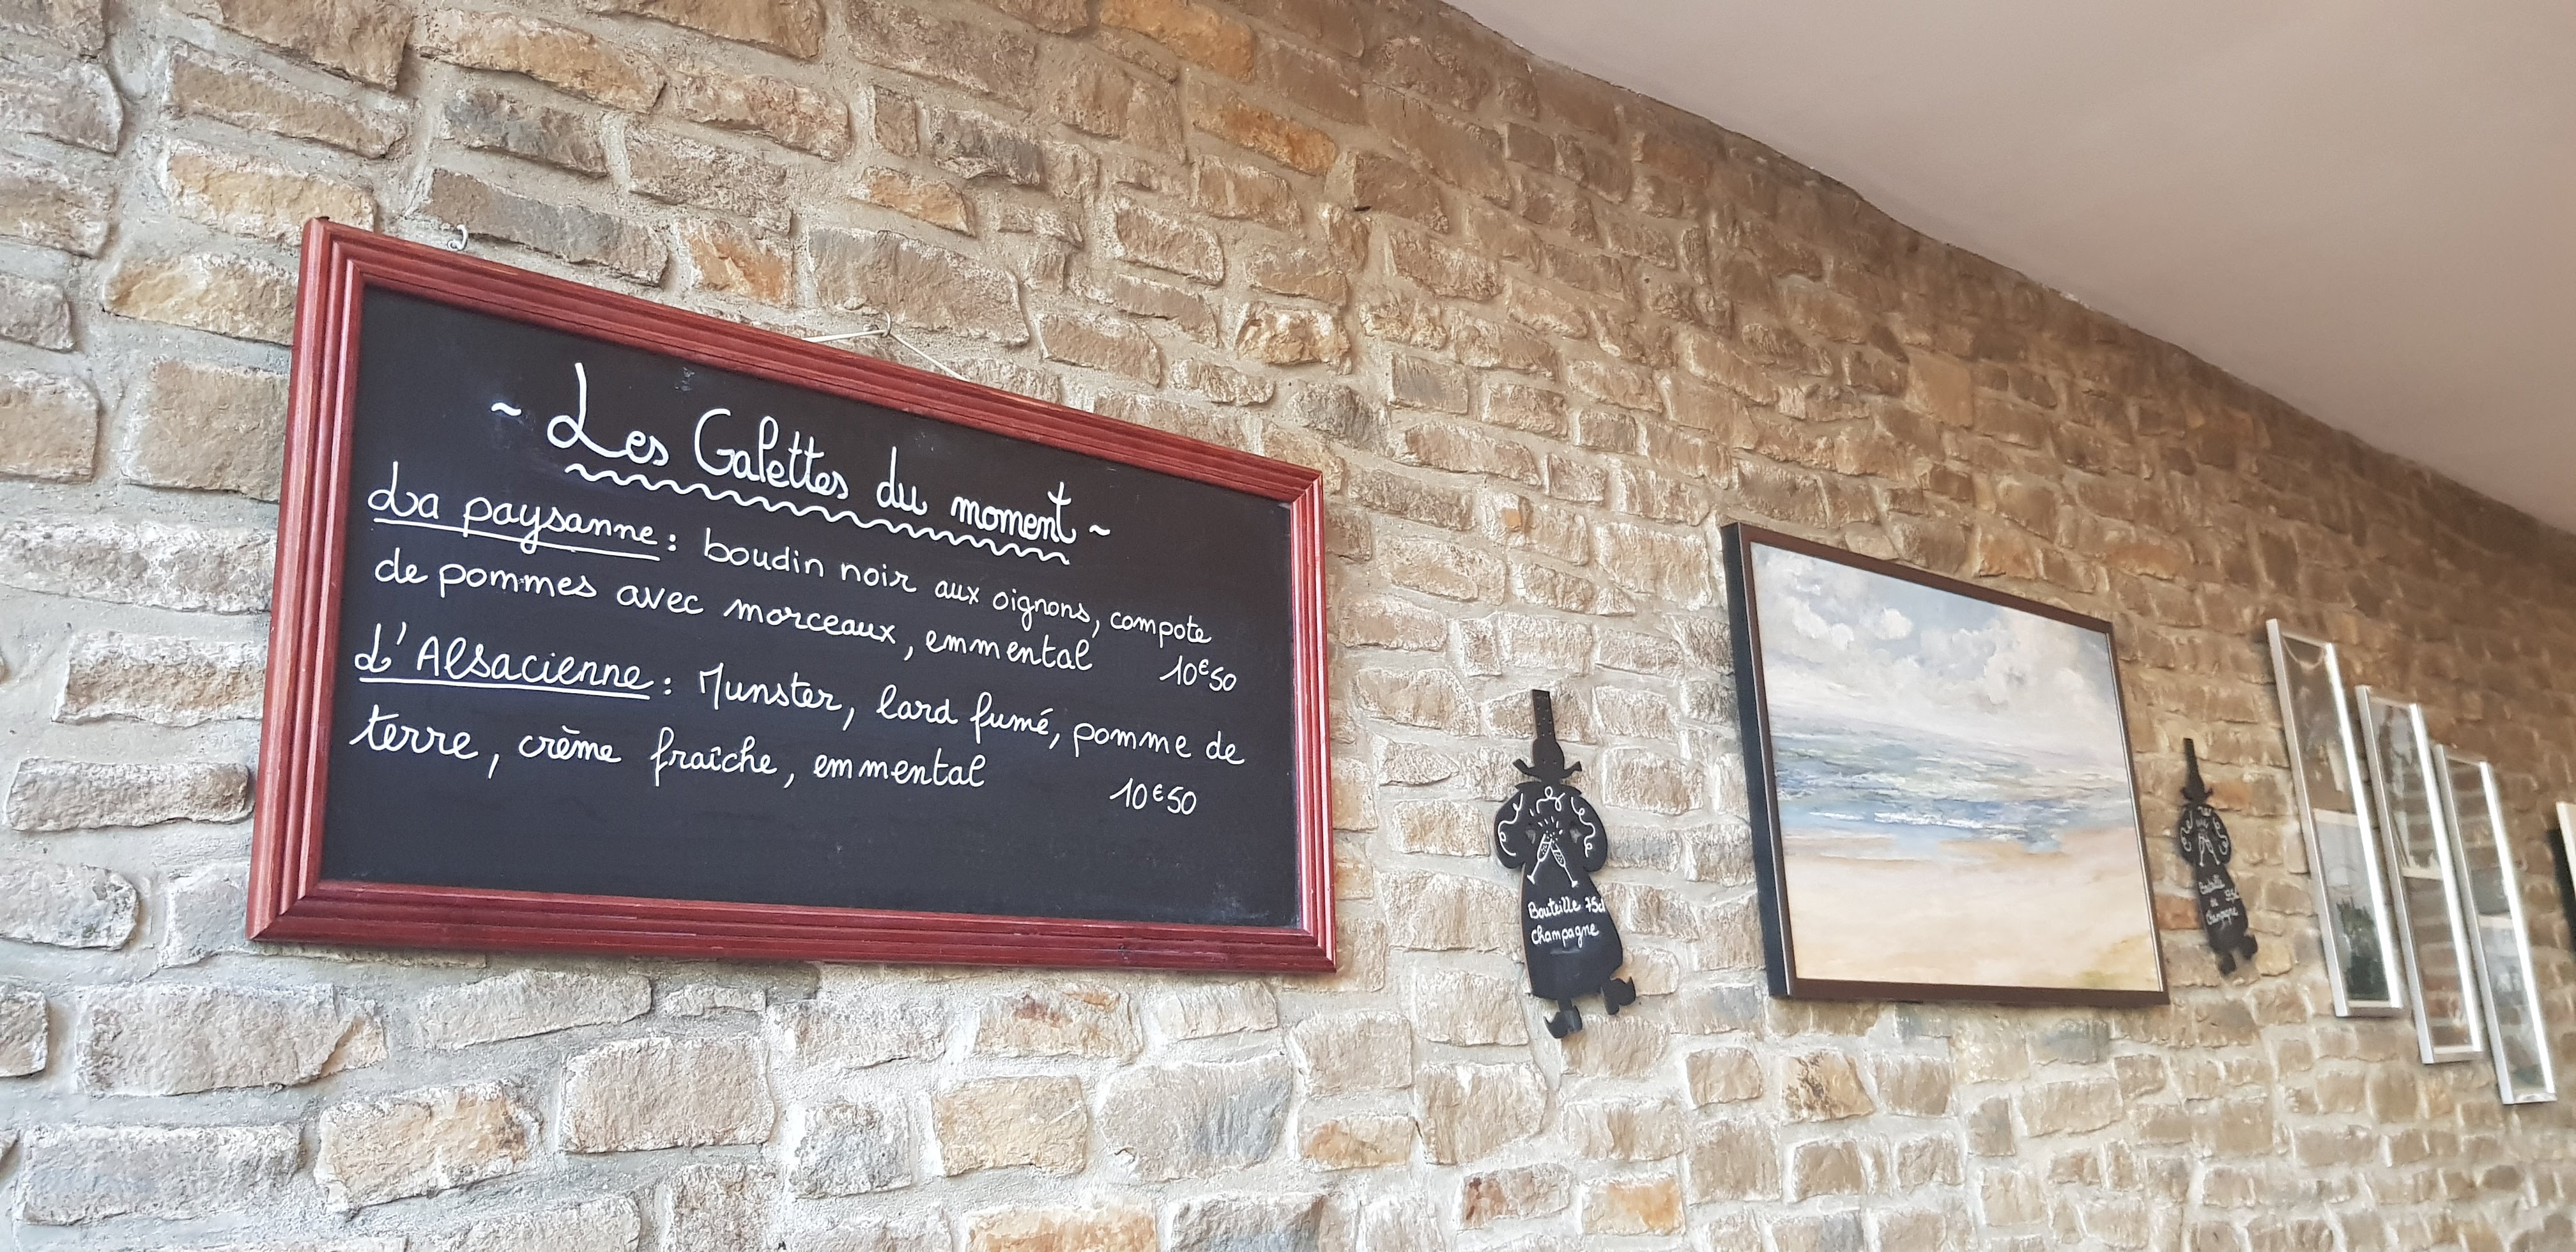 ~ Les Galettes du moment ~
La paysanne : boudin noir aux oignons, compote
de pommes avec morceaux, emmental 10€50
L'Alsacienne : Munster, lard fumé, pomme de
terre, crème fraîche, emmental 10€50
Bouteille 75cl
Champagne
Bouteille
de
Champagne